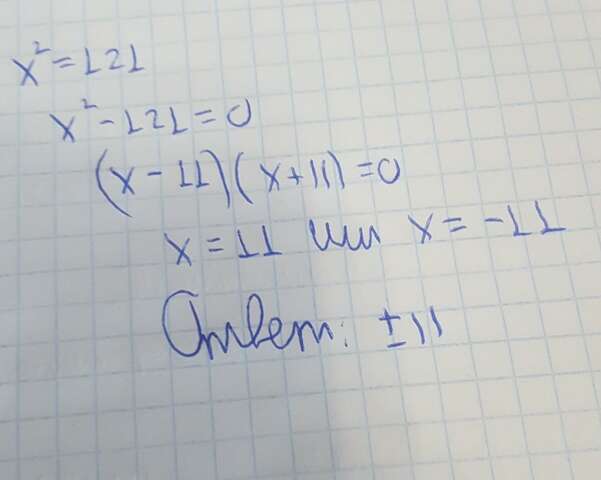 x² = 121
x² - 121 = 0
(x - 11)(x + 11) = 0
x = 11 или x = -11
Ответ: ±11